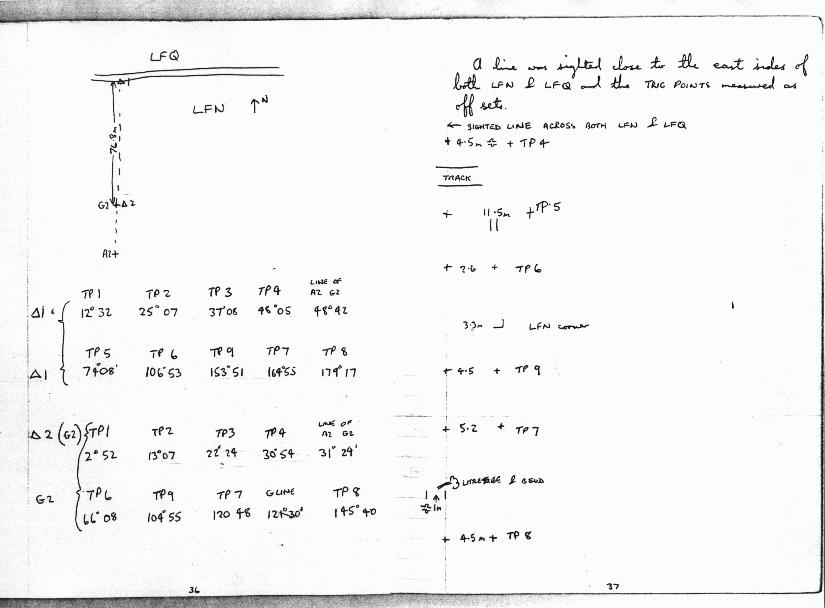 LFQ
Δ1
LFN ↑N
76.8m
G2 + Δ2
A2+
TP1 TP2 TP3 TP4 LINE OF A2 G2
Δ1 12°32 25°07 37°06 48°05 48°42
TP5 TP6 TP9 TP7 TP8
Δ1 74°08' 106°53 153°51 164°55 179°17
Δ2 (G2) TP1 TP2 TP3 TP4 LINE OF A2 G2
2°52 13°07 22°24 30°54 31°29'
G2 TP6 TP9 TP7 G LINE TP8
66°08 104°55 120 48 129°30' 145°40
36
A line was sighted close to the east sides of
both LFN & LFQ and the TRIG POINTS measured as
off sets.
← SIGHTED LINE ACROSS BOTH LFN & LFQ
+ 4.5m + TP4
TRACK
+ 11.5m + TP.5
+ 2.6 + TP6
3.3m LFN corner
+ 4.5 + TP9
+ 5.2 + TP7
& BEND
1m
+ 4.5m + TP8
37